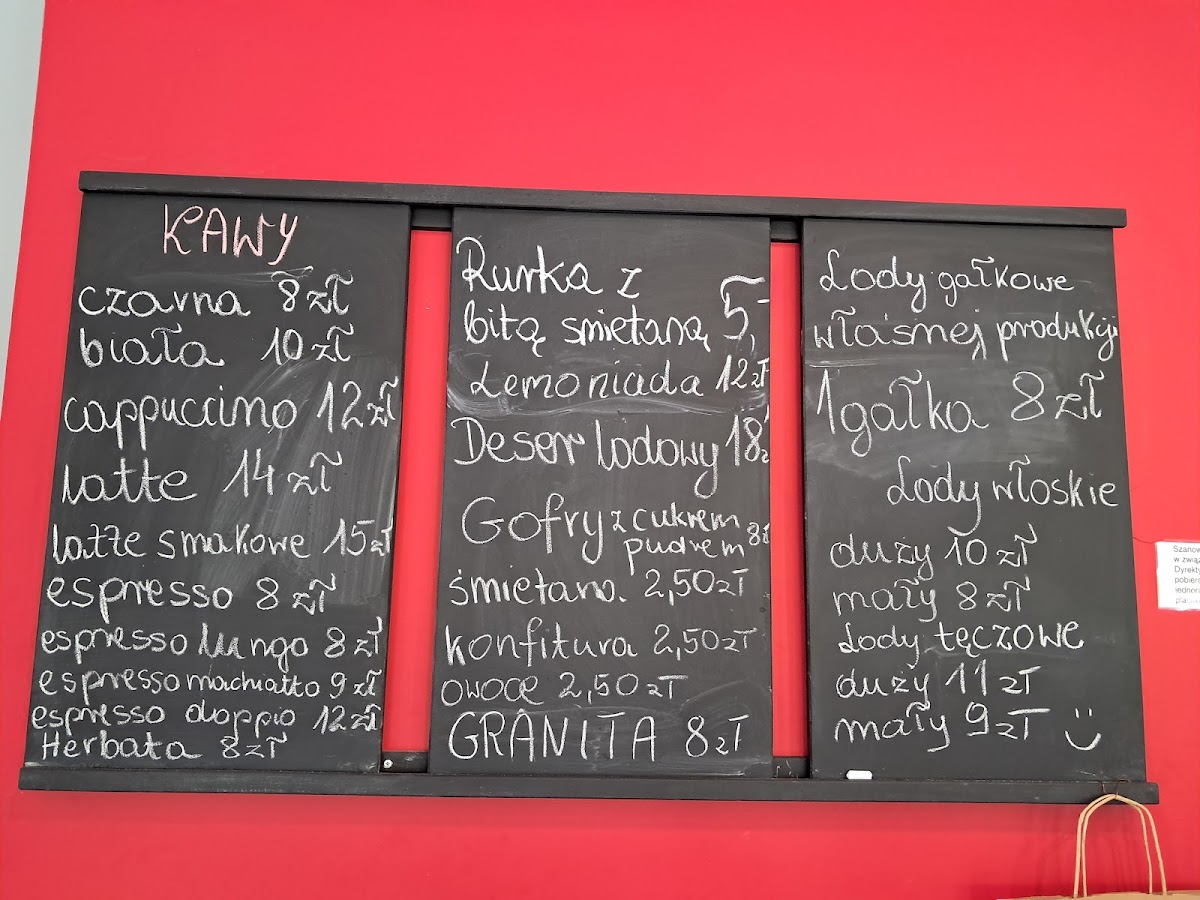 KAWY
czarna 8 zł
biała 10 zł
cappuccino 12 zł
latte 14 zł
latte smakowe 15 zł
espresso 8 zł
espresso lungo 8 zł
espresso machiatto 9 zł
espresso doppio 12 zł
Herbata 8 zł
Rurka z
bitą śmietaną 5,-
Lemoniada 12 zł
Deser lodowy 18 z
Gofry z cukrem
pudrem 8 zł
śmietana 2,50 zł
konfitura 2,50 zł
owoce 2,50 zł
GRANITA 8 zł
Lody gałkowe
własnej produkcji
1 gałka 8 zł
Lody włoskie
duży 10 zł
mały 8 zł
Lody tęczowe
duży 11 zł
mały 9 zł
Szanow
w zwią
Dyrekty
pobiero
jednora